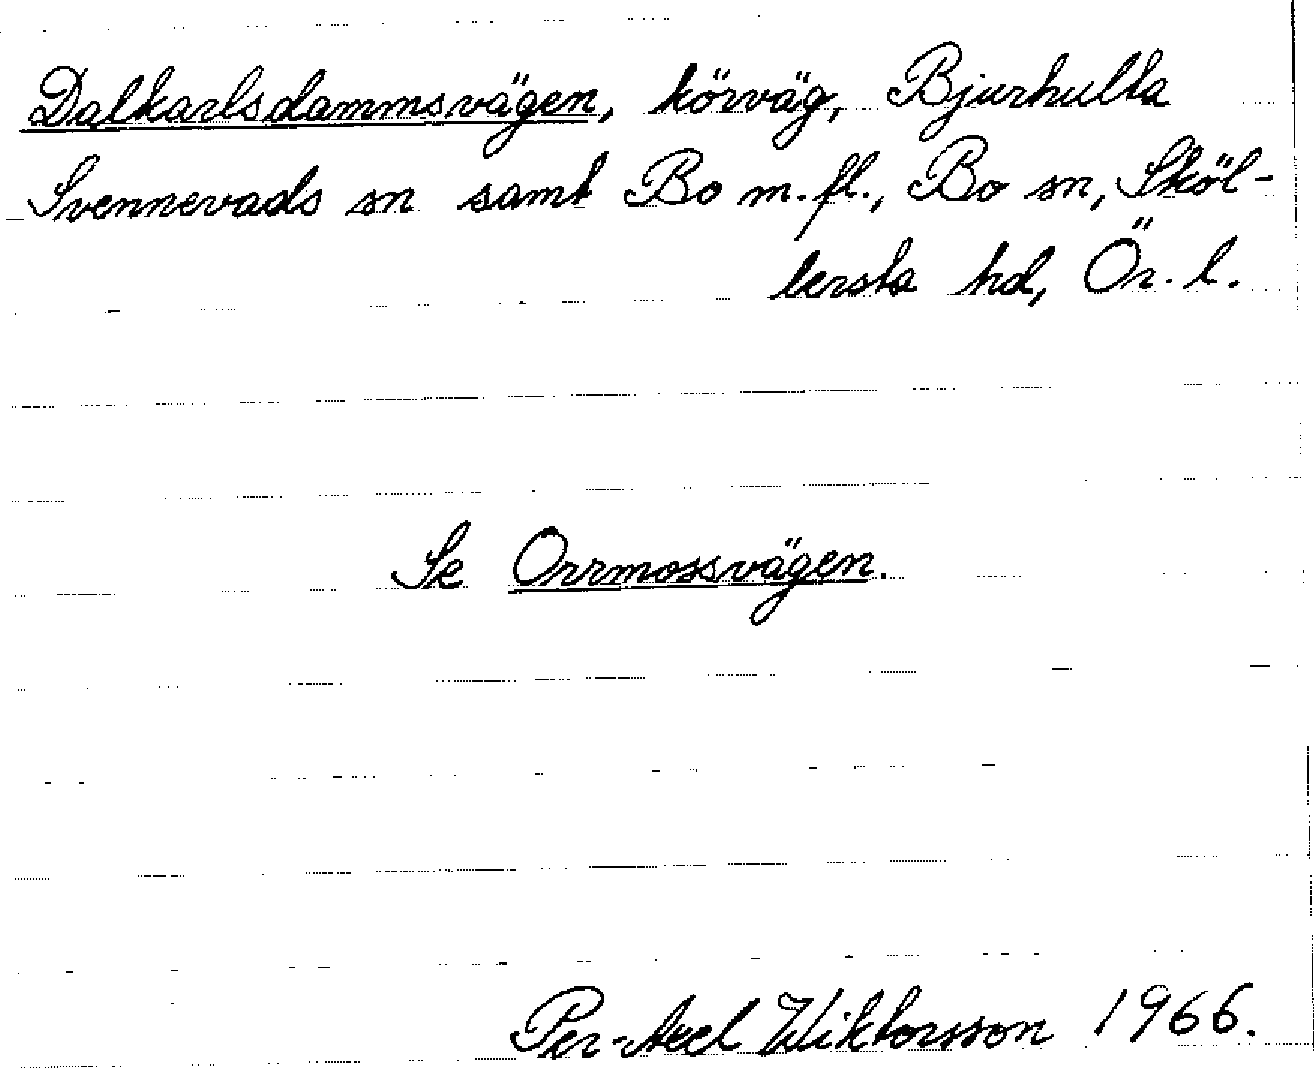 Dalkarlsdammsvägen, körväg, Bjurhulta
Svennevads sn samt Bo m.fl., Bo sn, Sköl-
lersta hd, Ör. l.
Se Orrmossvägen.
Per-Axel Wiktorsson 1966.